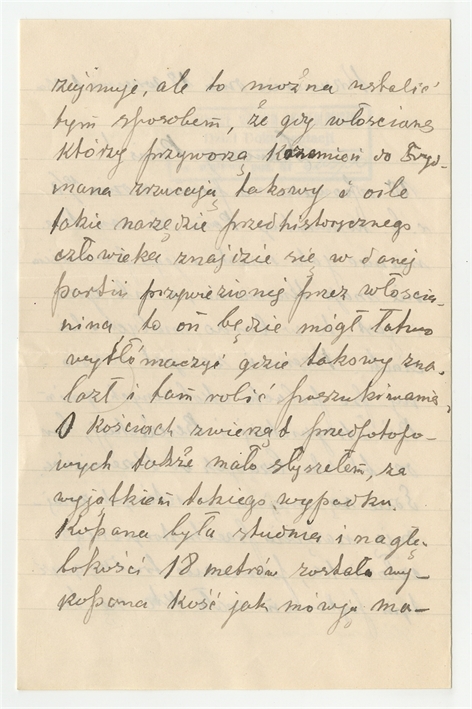 zujmuje, ale to można ustalić
tym sposobem, że gdy włościanie
którzy przywożą Kamień do Fryd-
mana zrzucają takowy i o ile
takie narzędzie przedhistorycznego
człowieka znajdzie się w danej
partii przywiezionej przez włościa-
nina to on będzie mógł łatwo
wytłómaczyć gdzie takowy zna-
lazł i tam robić poszukiwania.
O Kościach zwierząt przedpotopo-
wych także mało słyszełem, za
wyjątkiem takiego wypadku.
Kopana była studnia i na głę-
bokości 18 metrów została wy-
kopana Kość jak mówją ma-